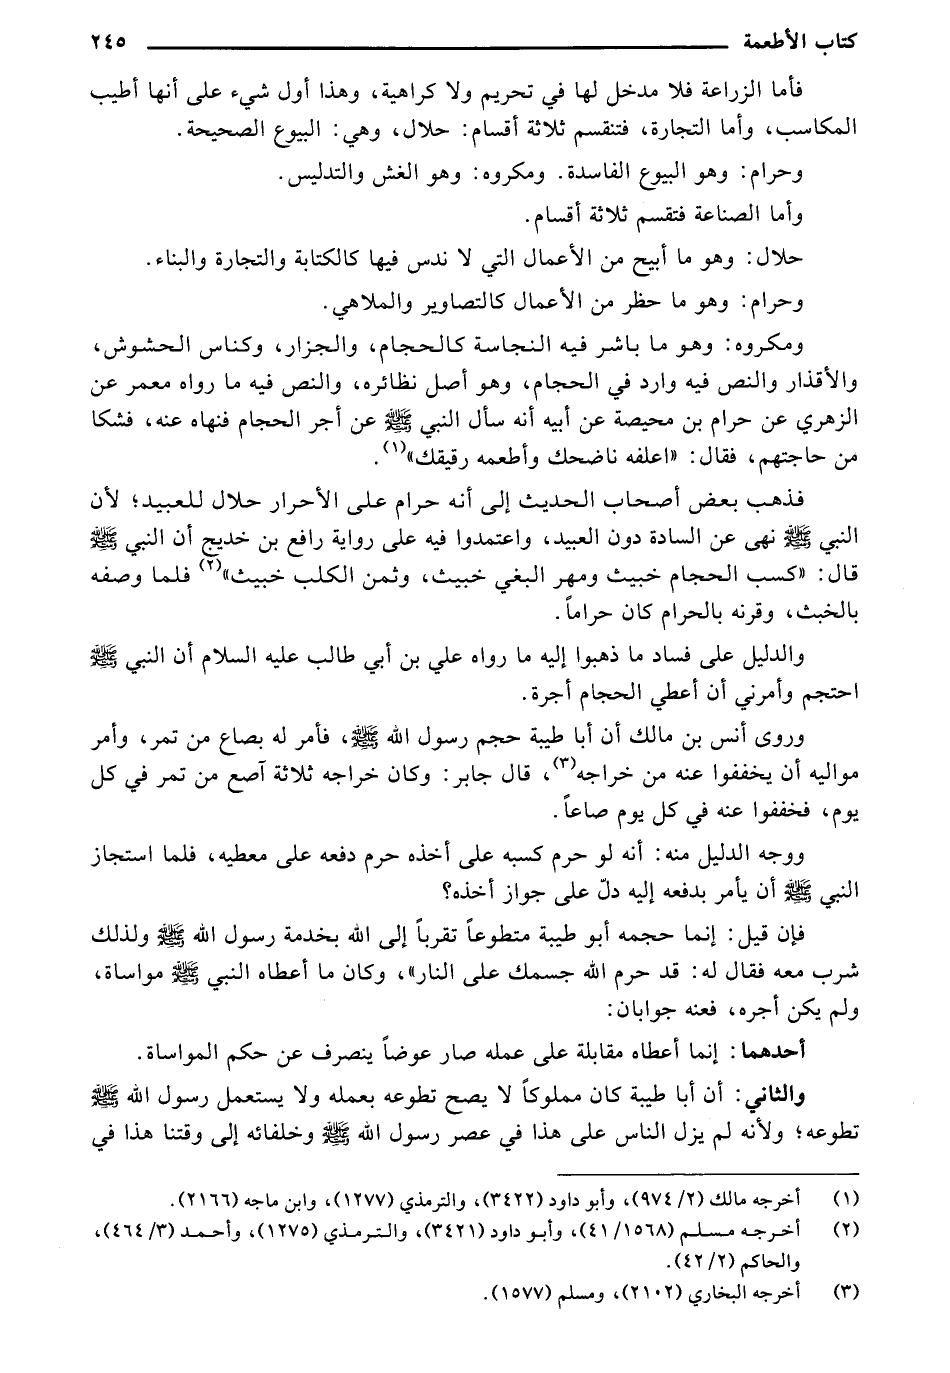 كتاب الأطعمة ٢٤٥
فأما الزراعة فلا مدخل لها في تحريم ولا كراهية، وهذا أول شيء على أنها أطيب
المكاسب، وأما التجارة، فتنقسم ثلاثة أقسام: حلال، وهي: البيوع الصحيحة.
وحرام: وهو البيوع الفاسدة. ومكروه: وهو الغش والتدليس.
وأما الصناعة فتقسم ثلاثة أقسام.
حلال: وهو ما أبيح من الأعمال التي لا ندس فيها كالكتابة والتجارة والبناء.
وحرام: وهو ما حظر من الأعمال كالتصاوير والملاهي.
ومكروه: وهو ما باشر فيه النجاسة كالحجام، والجزار، وكناس الحشوش،
والأقذار والنص فيه وارد في الحجام، وهو أصل نظائره، والنص فيه ما رواه معمر عن
الزهري عن حرام بن محيصة عن أبيه أنه سأل النبي ﷺ عن أجر الحجام فنهاه عنه، فشكا
من حاجتهم، فقال: «اعلفه ناضحك وأطعمه رقيقك»(١).
فذهب بعض أصحاب الحديث إلى أنه حرام على الأحرار حلال للعبيد؛ لأن
النبي ﷺ نهى عن السادة دون العبيد، واعتمدوا فيه على رواية رافع بن خديج أن النبي ﷺ
قال: «كسب الحجام خبيث ومهر البغي خبيث، وثمن الكلب خبيث»(٢) فلما وصفه
بالخبث، وقرنه بالحرام كان حراماً.
والدليل على فساد ما ذهبوا إليه ما رواه علي بن أبي طالب عليه السلام أن النبي ﷺ
احتجم وأمرني أن أعطي الحجام أجرة.
وروى أنس بن مالك أن أبا طيبة حجم رسول الله ﷺ، فأمر له بصاع من تمر، وأمر
مواليه أن يخففوا عنه من خراجه(٣)، قال جابر: وكان خراجه ثلاثة آصع من تمر في كل
يوم، فخففوا عنه في كل يوم صاعاً.
ووجه الدليل منه: أنه لو حرم كسبه على أخذه حرم دفعه على معطيه، فلما استجاز
النبي ﷺ أن يأمر بدفعه إليه دلّ على جواز أخذه؟
فإن قيل: إنما حجمه أبو طيبة متطوعاً تقرباً إلى الله بخدمة رسول الله ﷺ ولذلك
شرب معه فقال له: قد حرم الله جسمك على النار»، وكان ما أعطاه النبي ﷺ مواساة،
ولم يكن أجره، فعنه جوابان:
أحدهما: إنما أعطاه مقابلة على عمله صار عوضاً ينصرف عن حكم المواساة.
والثاني: أن أبا طيبة كان مملوكاً لا يصح تطوعه بعمله ولا يستعمل رسول الله ﷺ
تطوعه؛ ولأنه لم يزل الناس على هذا في عصر رسول الله ﷺ وخلفائه إلى وقتنا هذا في
(١) أخرجه مالك (٢/ ٩٧٤)، وأبو داود (٣٤٢٢)، والترمذي (١٢٧٧)، وابن ماجه (٢١٦٦).
(٢) أخرجه مسلم (٤١/١٥٦٨)، وأبو داود (٣٤٢١)، والترمذي (١٢٧٥)، وأحمد (٣/ ٤٦٤)،
والحاكم (٢/ ٤٢).
(٣) أخرجه البخاري (٢١٠٢)، ومسلم (١٥٧٧).